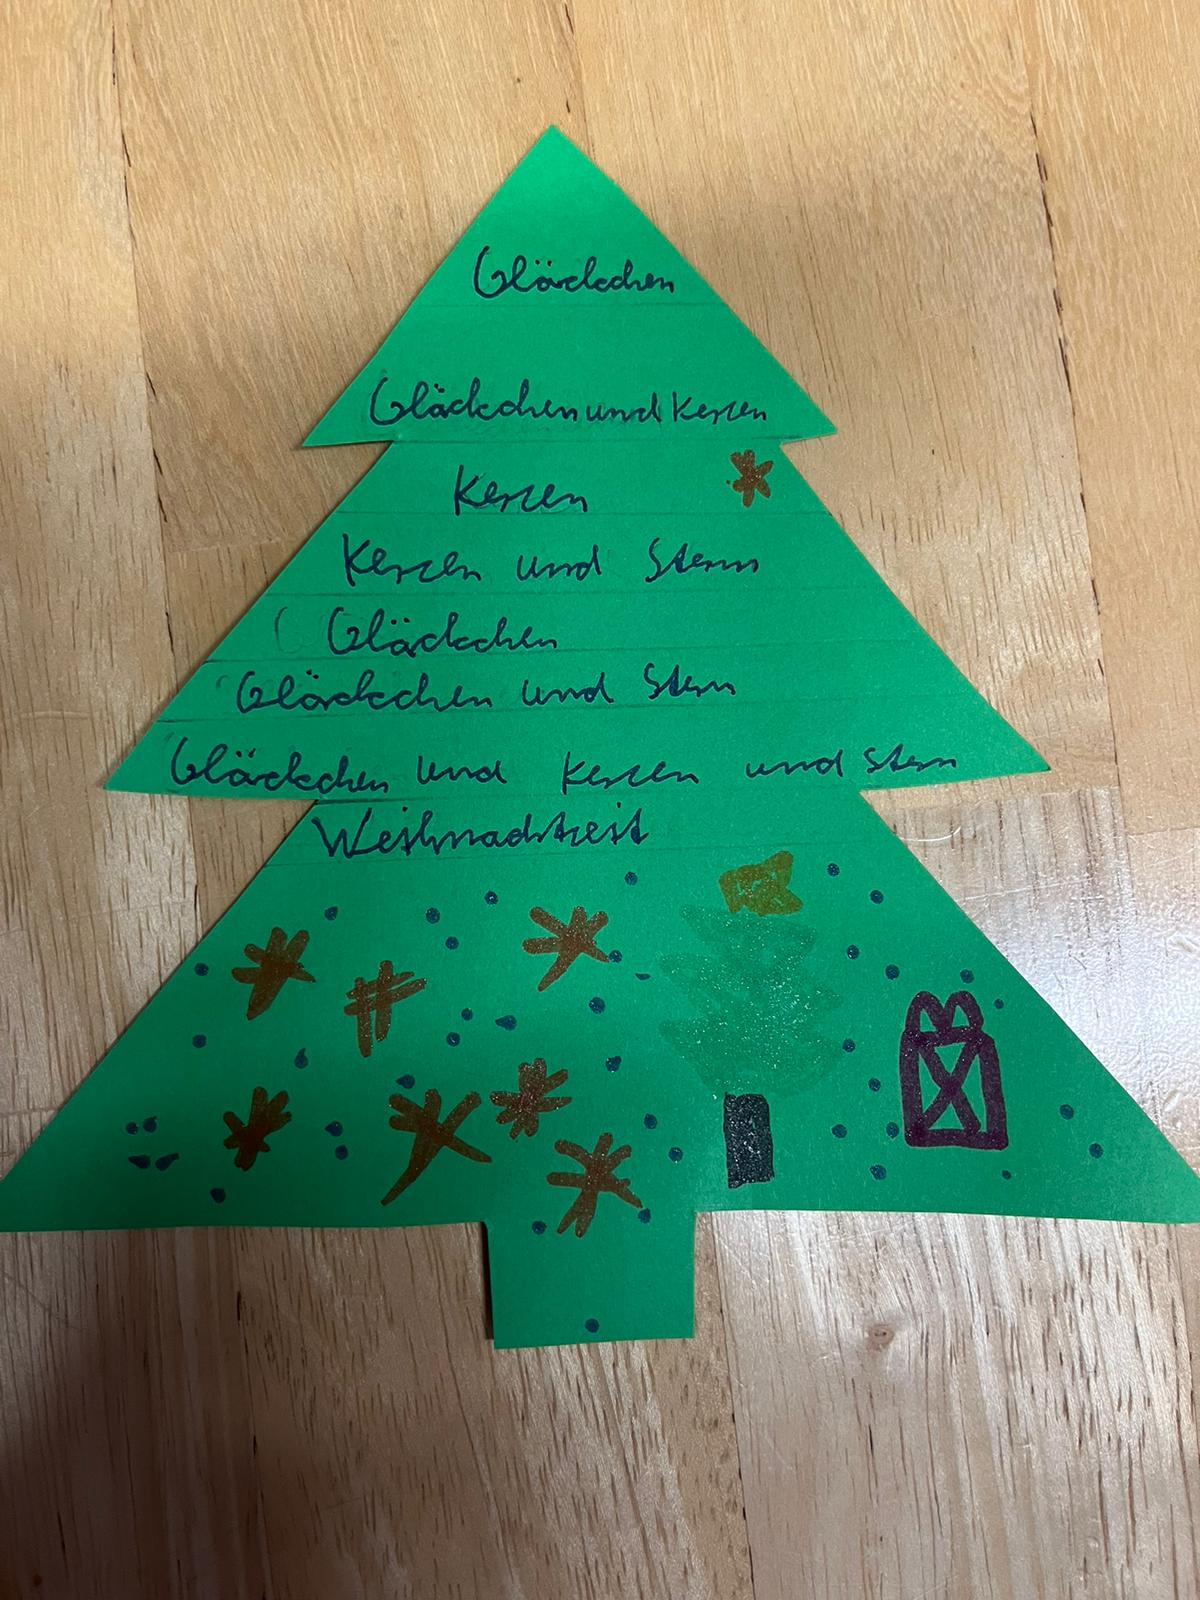 Glöckchen
Glöckchen und Kerzen
Kerzen
Kerzen und Stern
Glöckchen
Glöckchen und Stern
Glöckchen und Kerzen und Stern
Weihnachtzeit